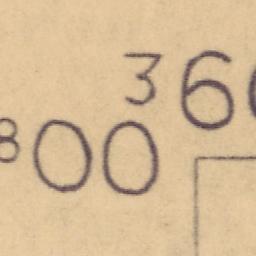 360
800